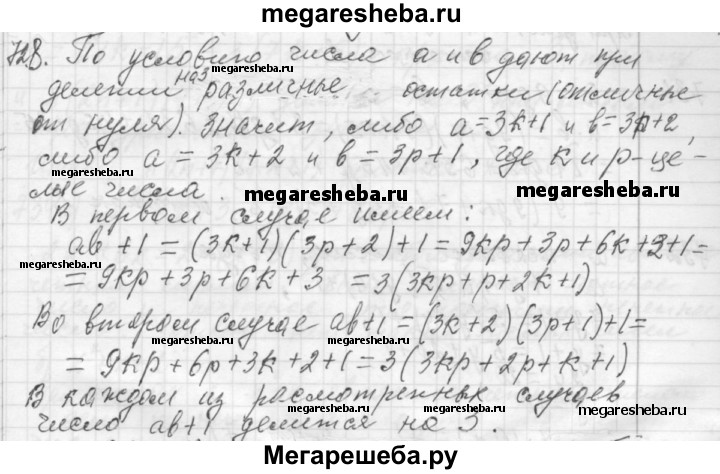 megaresheba.ru
728. По условию числа a и b дают при
megaresheba.ru на 3 megaresheba.ru
делении различные остатки (отличные
от нуля). Значит, либо a = 3k+1 и b = 3p+2,
либо a = 3k+2 и b = 3p+1, где k и p – це-
лые числа. megaresheba.ru megaresheba.ru
В первом случае имеем:
ab + 1 = (3k+1)(3p+2)+1 = 9kp+3p+6k+2+1=
megaresheba.ru megaresheba.ru
= 9kp+3p+6k+3 = 3(3kp+p+2k+1)
Во втором случае ab+1 = (3k+2)(3p+1)+1=
= 9kp+6p+3k+2+1=3(3kp+2p+k+1)
В каждом из расмотренных случаев
megaresheba.ru megaresheba.ru
число ab+1 делится на 3.
Мегарешеба.ру